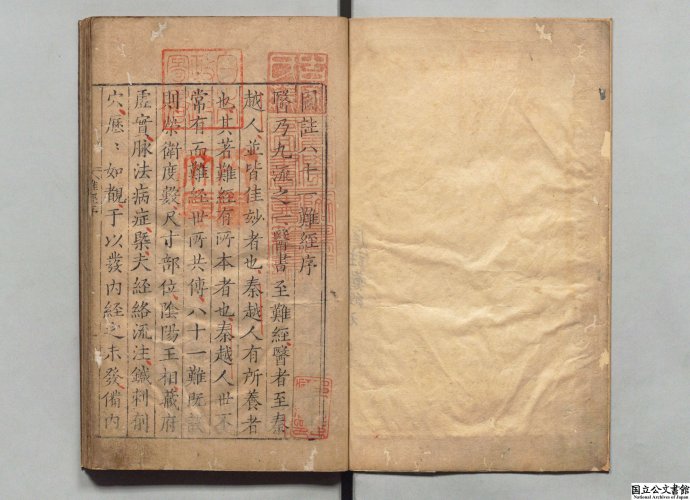 圖註八十一難經序
醫乃九流之一醫書至難經醫者至秦
越人並皆佳妙者也秦越人有所養者
也其著難經有所本者也秦越人世不
常有而難經世所共傳八十一難既
則榮衛度數尺寸部位陰陽王相藏府
虛實脉法病症槩夫經絡流注鍼刺俞
穴歷歷如覩于以發內經之未發備內
難經序
国立公文書館
National Archives of Japan